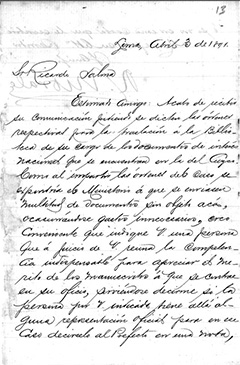 13
Lima, Abril 3 de 1891.
Sr Ricardo Palma
Estimado amigo: Acabo de recibir
su comunicación pidiendo se dicten las órdenes
respectivas para la traslación á la Biblio
teca de su cargo de los documentos de interés
nacional que se encuentran en la del Cuzco.
Como al impartir las órdenes del caso se
expondría el Ministerio á que se enviasen
multitud de documentos sin objeto acá,
ocasionándose gastos innecesarios, creo
conveniente que indique U una persona
que á juicio de U reuna la competen
cia indispensable para apreciar el mé
rito de los manuscritos á que se contrae
en su oficio, sirviéndose decirme si la
persona por U indicada tiene allá al
guna representación oficial, para en ese
caso decírselo al Prefecto en una nota,